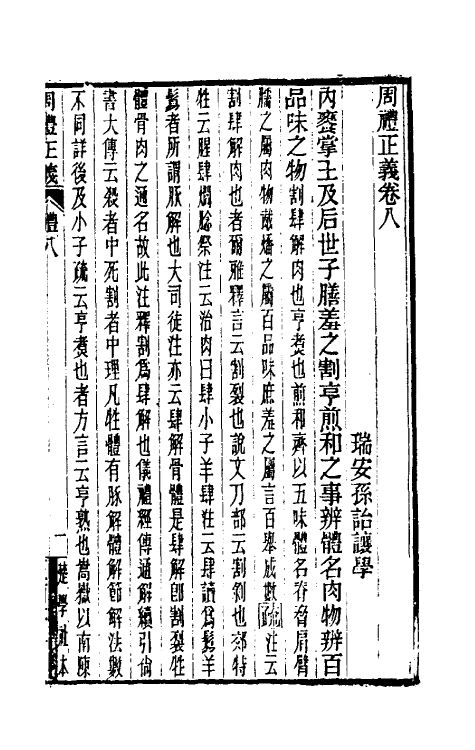 周禮正義卷八
瑞安孫詒讓學
內饔掌王及后世子膳羞之割亨煎和之事辨體名肉物辨百
品味之物割肆解肉也亨煑也煎和齊以五味體名脊脅肩臂
臑之屬肉物胾燔之屬百品味庶羞之屬言百舉成數疏注云
割肆解肉也者爾雅釋言云割裂也說文刀部云割剝也郊特
牲云腥肆爓腍祭注云治肉曰肆小子羊肆注云肆讀爲鬄羊
鬄者所謂豚解也大司徒注亦云肆解骨體是肆解卽割裂牲
體骨肉之通名故此注釋割爲肆解也儀禮經傳通解續引尙
書大傳云殺者中死割者中理凡牲體有豚解體解節解法數
不同詳後及小子疏云亨煑也者方言云亨熟也嵩嶽以南陳
周禮正義
禮八
一
楚學社本